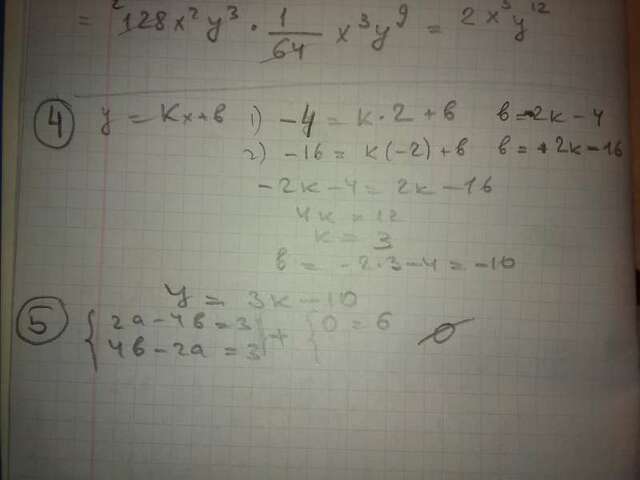 = 128x²y³ · 1/64 x³y⁹ = 2x⁵y¹²
④ y = kx+в 1) -4 = k·2+в в=-2k-4
2) -16 = k(-2)+в в=+2k-16
-2k-4 = 2k-16
4k = 12
k = 3
в = -2·3-4 = -10
y = 3x-10
⑤ { 2a-4в=3 | + { 0=6 ∅
4в-2a=3